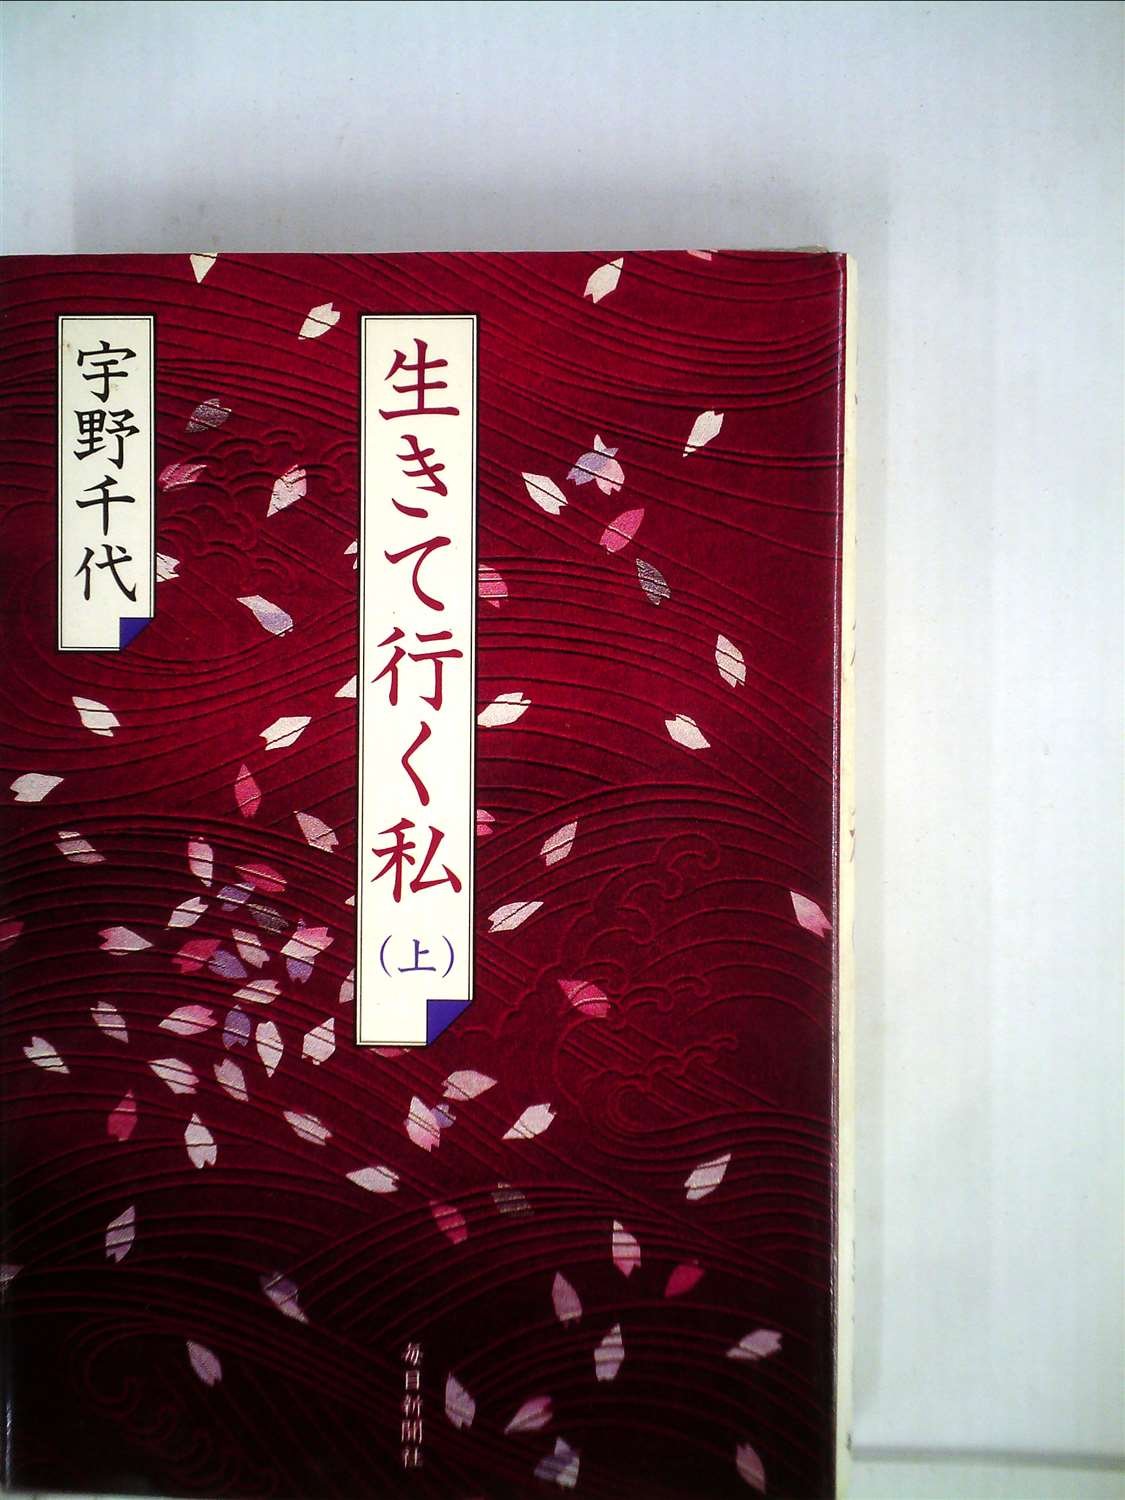 生きて行く私
(上)
宇野千代
毎日新聞社